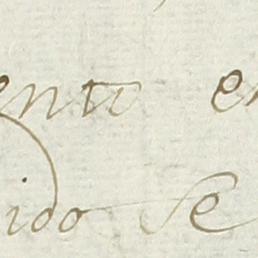 ento en
ido se